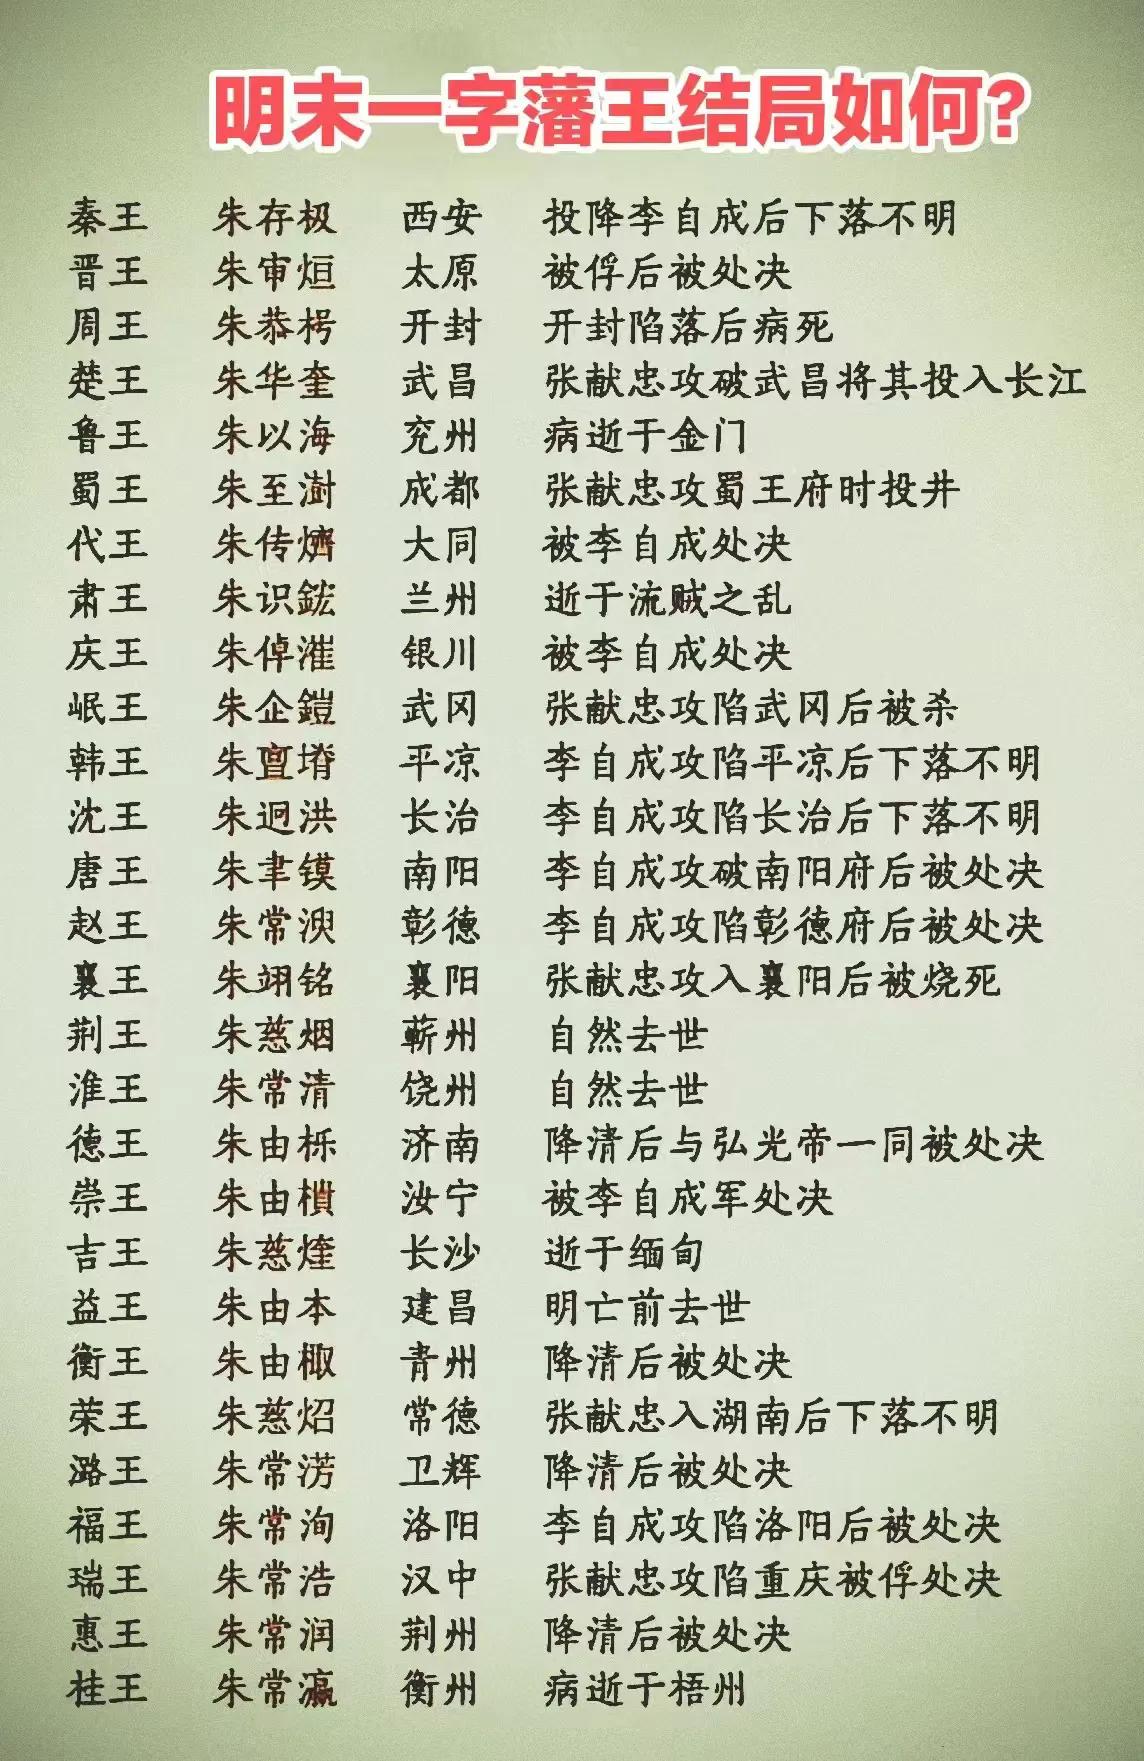 明末一字藩王结局如何?
秦王 朱存极 西安 投降李自成后下落不明
晋王 朱审烜 太原 被俘后被处决
周王 朱恭枵 开封 开封陷落后病死
楚王 朱华奎 武昌 张献忠攻破武昌将其投入长江
鲁王 朱以海 兖州 病逝于金门
蜀王 朱至澍 成都 张献忠攻蜀王府时投井
代王 朱传㸄 大同 被李自成处决
肃王 朱识鋐 兰州 逝于流贼之乱
庆王 朱倬漼 银川 被李自成处决
岷王 朱企鎧 武冈 张献忠攻陷武冈后被杀
韩王 朱亶塉 平凉 李自成攻陷平凉后下落不明
沈王 朱迥洪 长治 李自成攻陷长治后下落不明
唐王 朱聿镆 南阳 李自成攻破南阳府后被处决
赵王 朱常㳛 彰德 李自成攻陷彰德府后被处决
襄王 朱翊铭 襄阳 张献忠攻入襄阳后被烧死
荆王 朱慈烟 蕲州 自然去世
淮王 朱常清 饶州 自然去世
德王 朱由栎 济南 降清后与弘光帝一同被处决
崇王 朱由樻 汝宁 被李自成军处决
吉王 朱慈煃 长沙 逝于缅甸
益王 朱由本 建昌 明亡前去世
衡王 朱由棷 青州 降清后被处决
荣王 朱慈炤 常德 张献忠入湖南后下落不明
潞王 朱常淓 卫辉 降清后被处决
福王 朱常洵 洛阳 李自成攻陷洛阳后被处决
瑞王 朱常浩 汉中 张献忠攻陷重庆被俘处决
惠王 朱常润 荆州 降清后被处决
桂王 朱常瀛 衡州 病逝于梧州